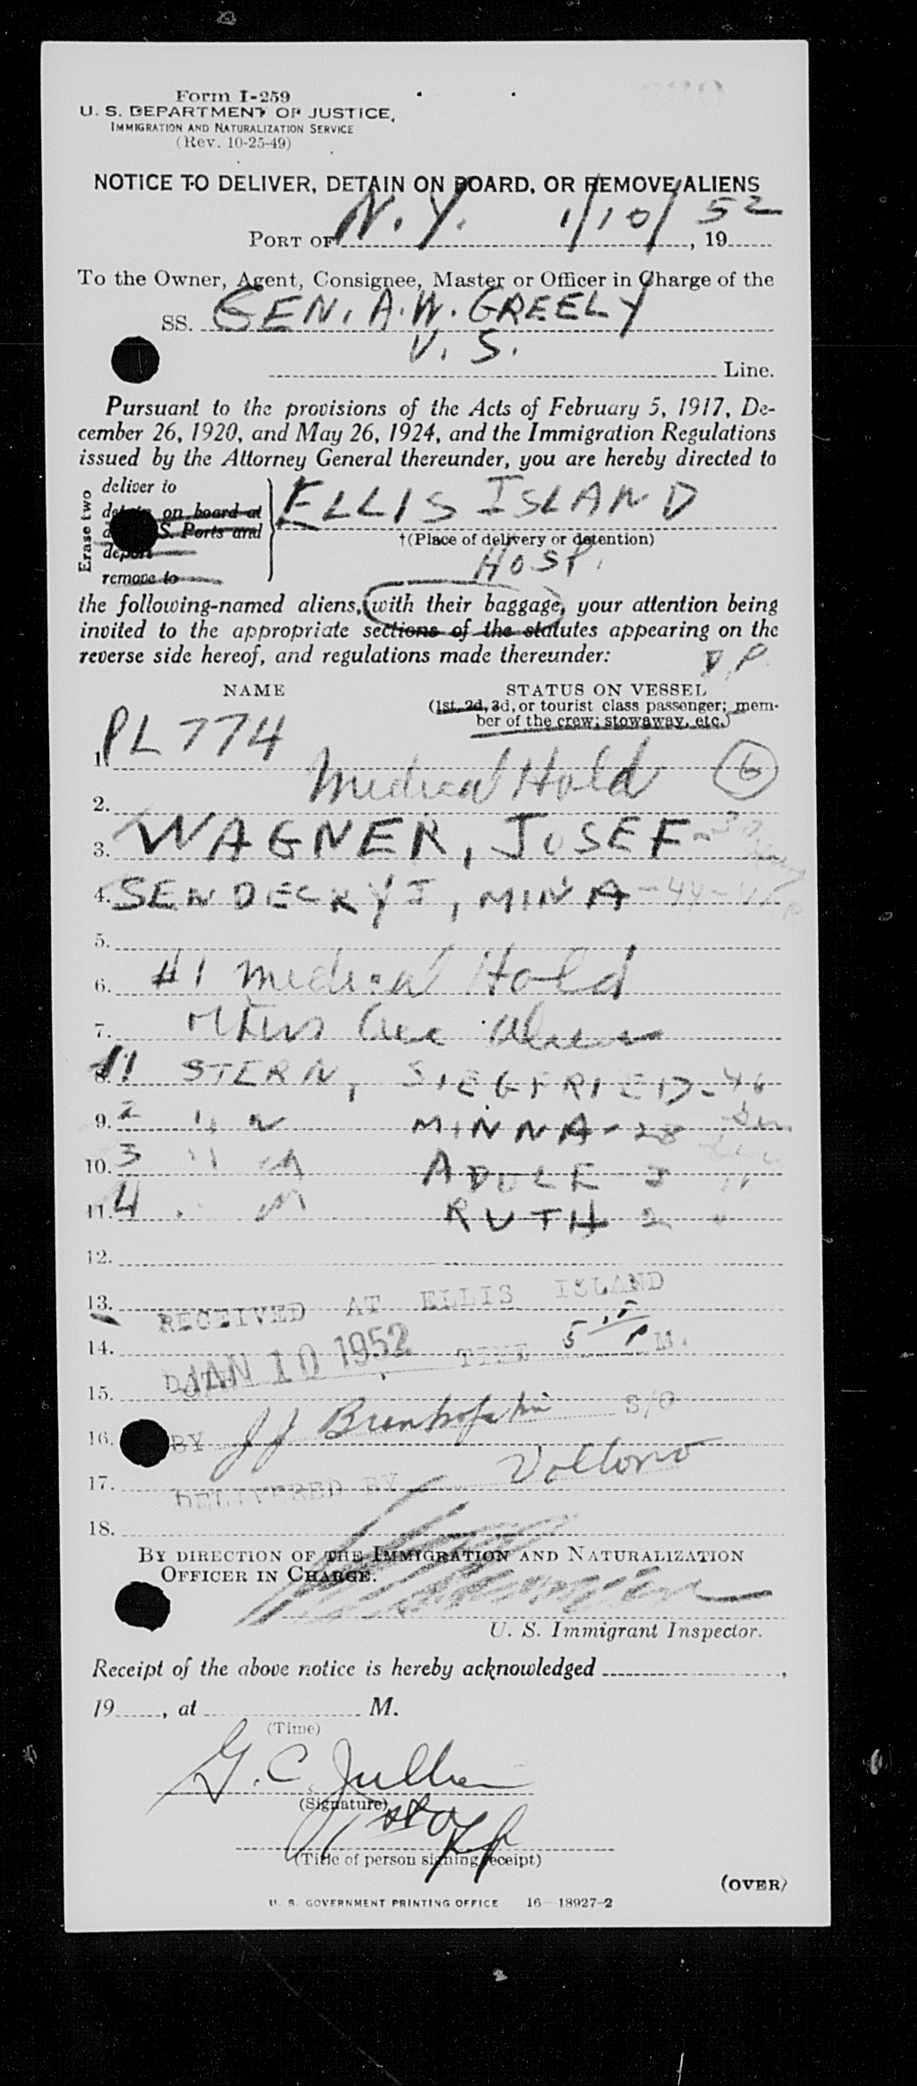 Form I-259
U. S. DEPARTMENT OF JUSTICE,
IMMIGRATION AND NATURALIZATION SERVICE
(Rev. 10-25-49)
NOTICE TO DELIVER, DETAIN ON BOARD, OR REMOVE ALIENS
PORT OF N. Y. 1/10/52, 19
To the Owner, Agent, Consignee, Master or Officer in Charge of the
SS. GEN. A. W. GREELY
U. S.
Line.
Pursuant to the provisions of the Acts of February 5, 1917, De-
cember 26, 1920, and May 26, 1924, and the Immigration Regulations
issued by the Attorney General thereunder, you are hereby directed to
Erase two
deliver to
on board at
S. Ports and
deport
remove to
ELLIS ISLAND
†(Place of delivery or detention)
HOSP.
the following-named aliens, with their baggage, your attention being
invited to the appropriate sections of the statutes appearing on the
reverse side hereof, and regulations made thereunder:
D. P.
NAME STATUS ON VESSEL
(1st, 2d, 3d, or tourist class passenger; mem-
ber of the crew; stowaway, etc.)
1. PL 774
2. Medical Hold 6
3. WAGNER, JOSEF
4. SENDECKYJ, MINA - 44
5.
6. #1 Medical Hold
7.
8. 1 STERN, SIEGFRIED - 46
9. 2 " MINNA - 28
10. 3 " ADELE 3 "
11. 4 RUTH 2 "
12.
13. RECEIVED AT ELLIS ISLAND
14. JAN 10 1952 TIME 5 15 P M.
15.
16. BY J J S/O
17. DELIVERED BY
18.
BY DIRECTION OF THE IMMIGRATION AND NATURALIZATION
OFFICER IN CHARGE.
U. S. Immigrant Inspector.
Receipt of the above notice is hereby acknowledged ,
19 , at M.
(Time)
G. C.
(Signature)
(Title of person signing receipt)
(OVER)
U. S. GOVERNMENT PRINTING OFFICE 16-18927-2